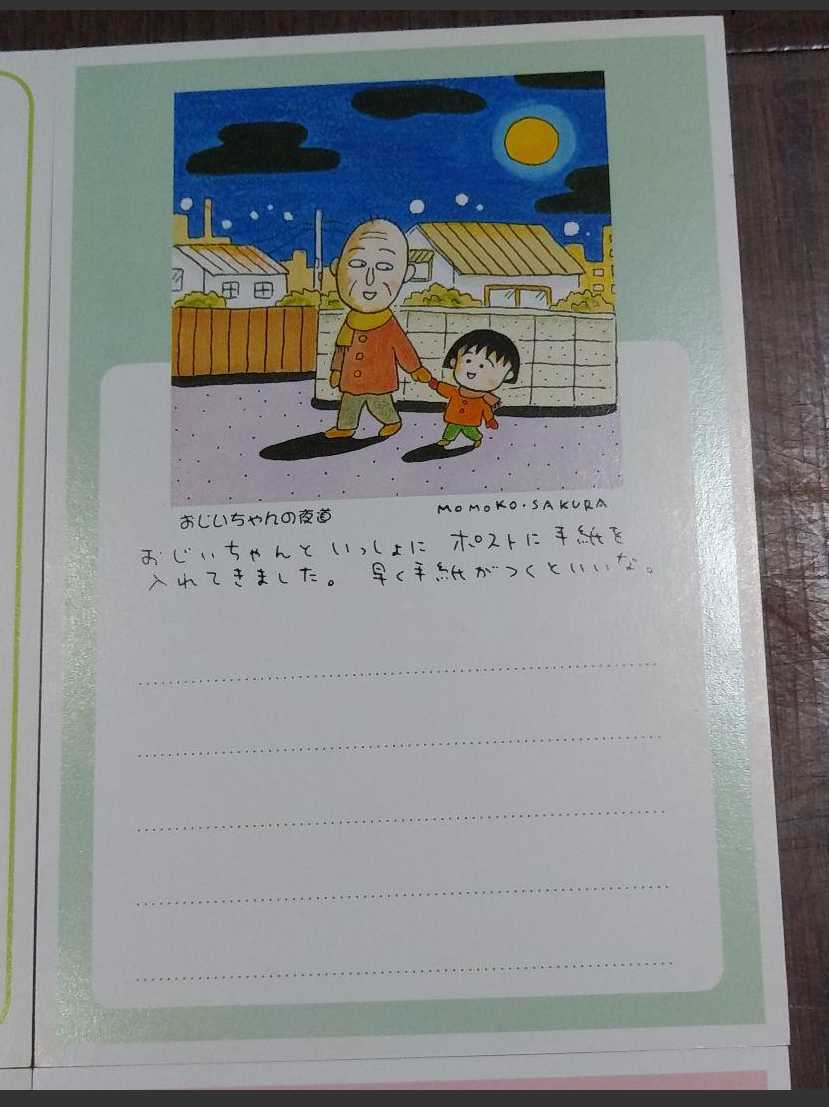 おじいちゃんの夜道
MOMOKO・SAKURA
おじいちゃんと いっしょに ポストに手紙を
入れてきました。 早く手紙がつくといいな。